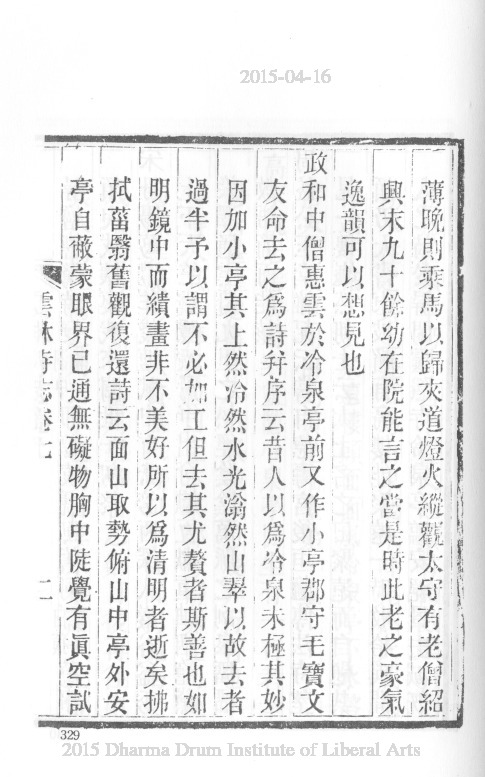 2015-04-16
薄晚則乘馬以歸夾道燈火縱觀太守有老僧紹
興末九十餘幼在院能言之當是時此老之豪氣
逸韻可以想見也
政和中僧惠雲於冷泉亭前又作小亭郡守毛寶文
友命去之爲詩幷序云昔人以爲冷泉未極其妙
因加小亭其上然泠然水光滃然山翠以故去者
過半予以謂不必加工但去其尤贅者斯善也如
明鏡中而繢畫非不美好所以爲清明者逝矣拂
拭菑翳舊觀復還詩云面山取勢俯山中亭外安
亭自蔽蒙眼界已通無礙物胸中陡覺有眞空試
雲林寺志卷七
二
329
2015 Dharma Drum Institute of Liberal Arts